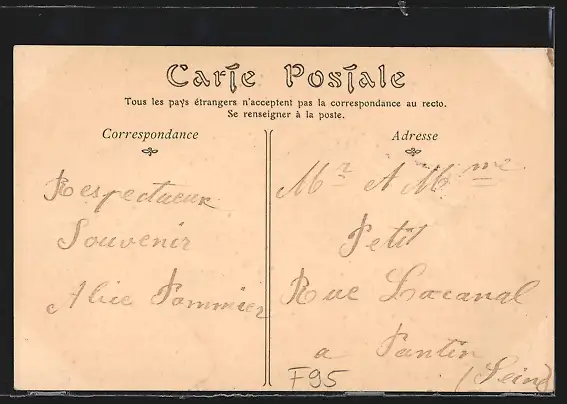 Carte Postale
Tous les pays étrangers n'acceptent pas la correspondance au recto.
Se renseigner à la poste.
Correspondance
Adresse
Respectueux
Souvenir
Alice Pommier
Mr A Mme
Petit
Rue Lacanal
a Pantin
(Seine)
F95